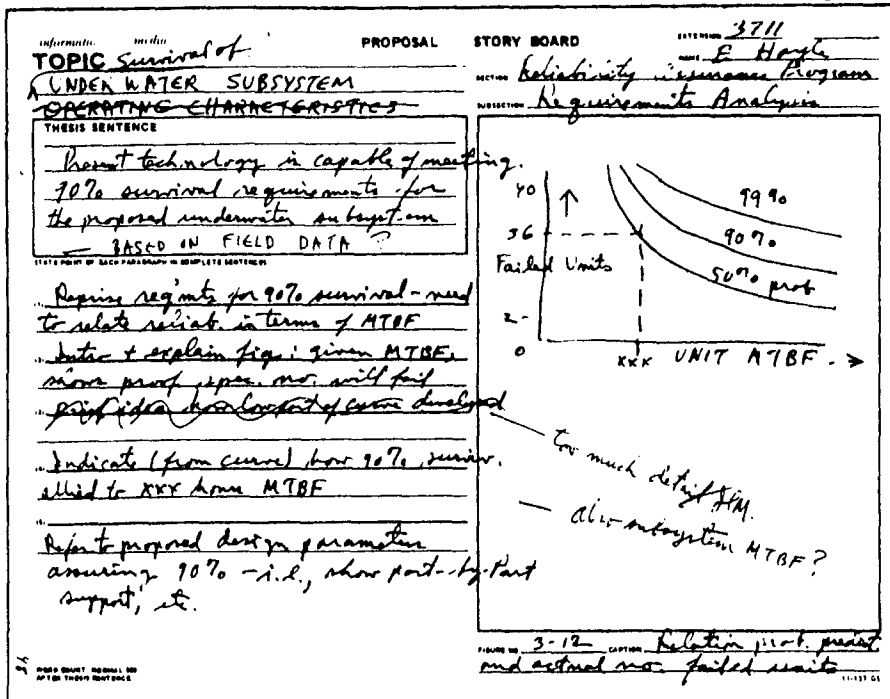 PROPOSAL STORY BOARD
EXTENSION 3711
NAME E
TOPIC Survival of
UNDERWATER SUBSYSTEM
OPERATING CHARACTERISTICS
SECTION Reliability Assurance Program
SUBSECTION Requirements Analysis
THESIS SENTENCE
Present technology is capable of meeting
90% survival requirements for
the proposed underwater subsystem
— BASED ON FIELD DATA ?
STATE POINT OF EACH PARAGRAPH IN COMPLETE SENTENCES
Reprise reqmts for 90% survival - need
to relate reliab. in terms of MTBF
Intro + explain fig: given MTBF,
shows spec. no. will fail
how of curve developed
Indicate (from curve) how 90% surviv.
allied to xxx hours MTBF
Refer to proposed design parameters
assuring 90% - i.e., show part-by-part
support, etc.
40
36
Failed Units
2-
0
99%
90%
50% prob
xxx UNIT MTBF
too much detail
also subsystem MTBF?
FIGURE NO 3-12 CAPTION Relation prob.
and actual no. failed units
WORD COUNT: NORMAL 500
AFTER THESIS SENTENCE